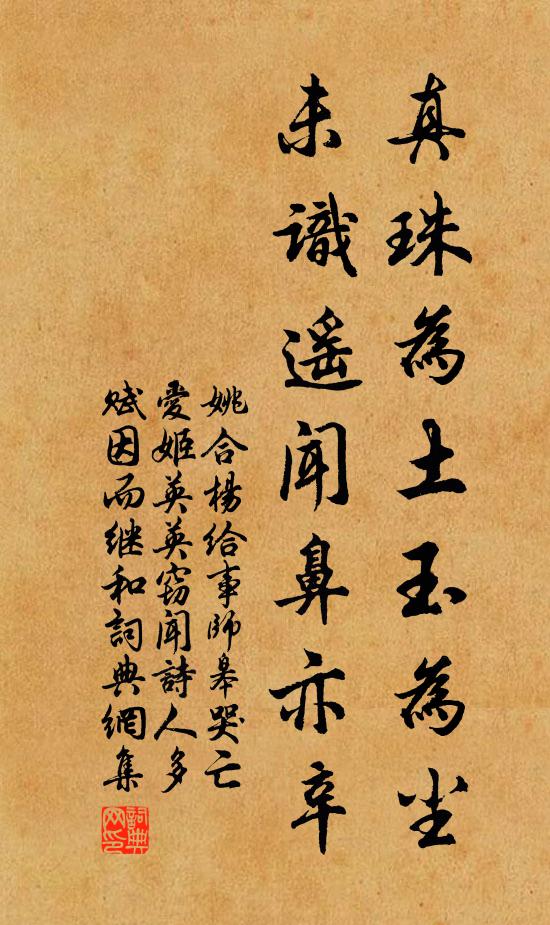 真珠為土玉為尘
未識遥闻鼻亦辛
姚合楊给事师皋哭亡
愛姬英英窃闻詩人多
赋因而继和詞典網集
詞典网印